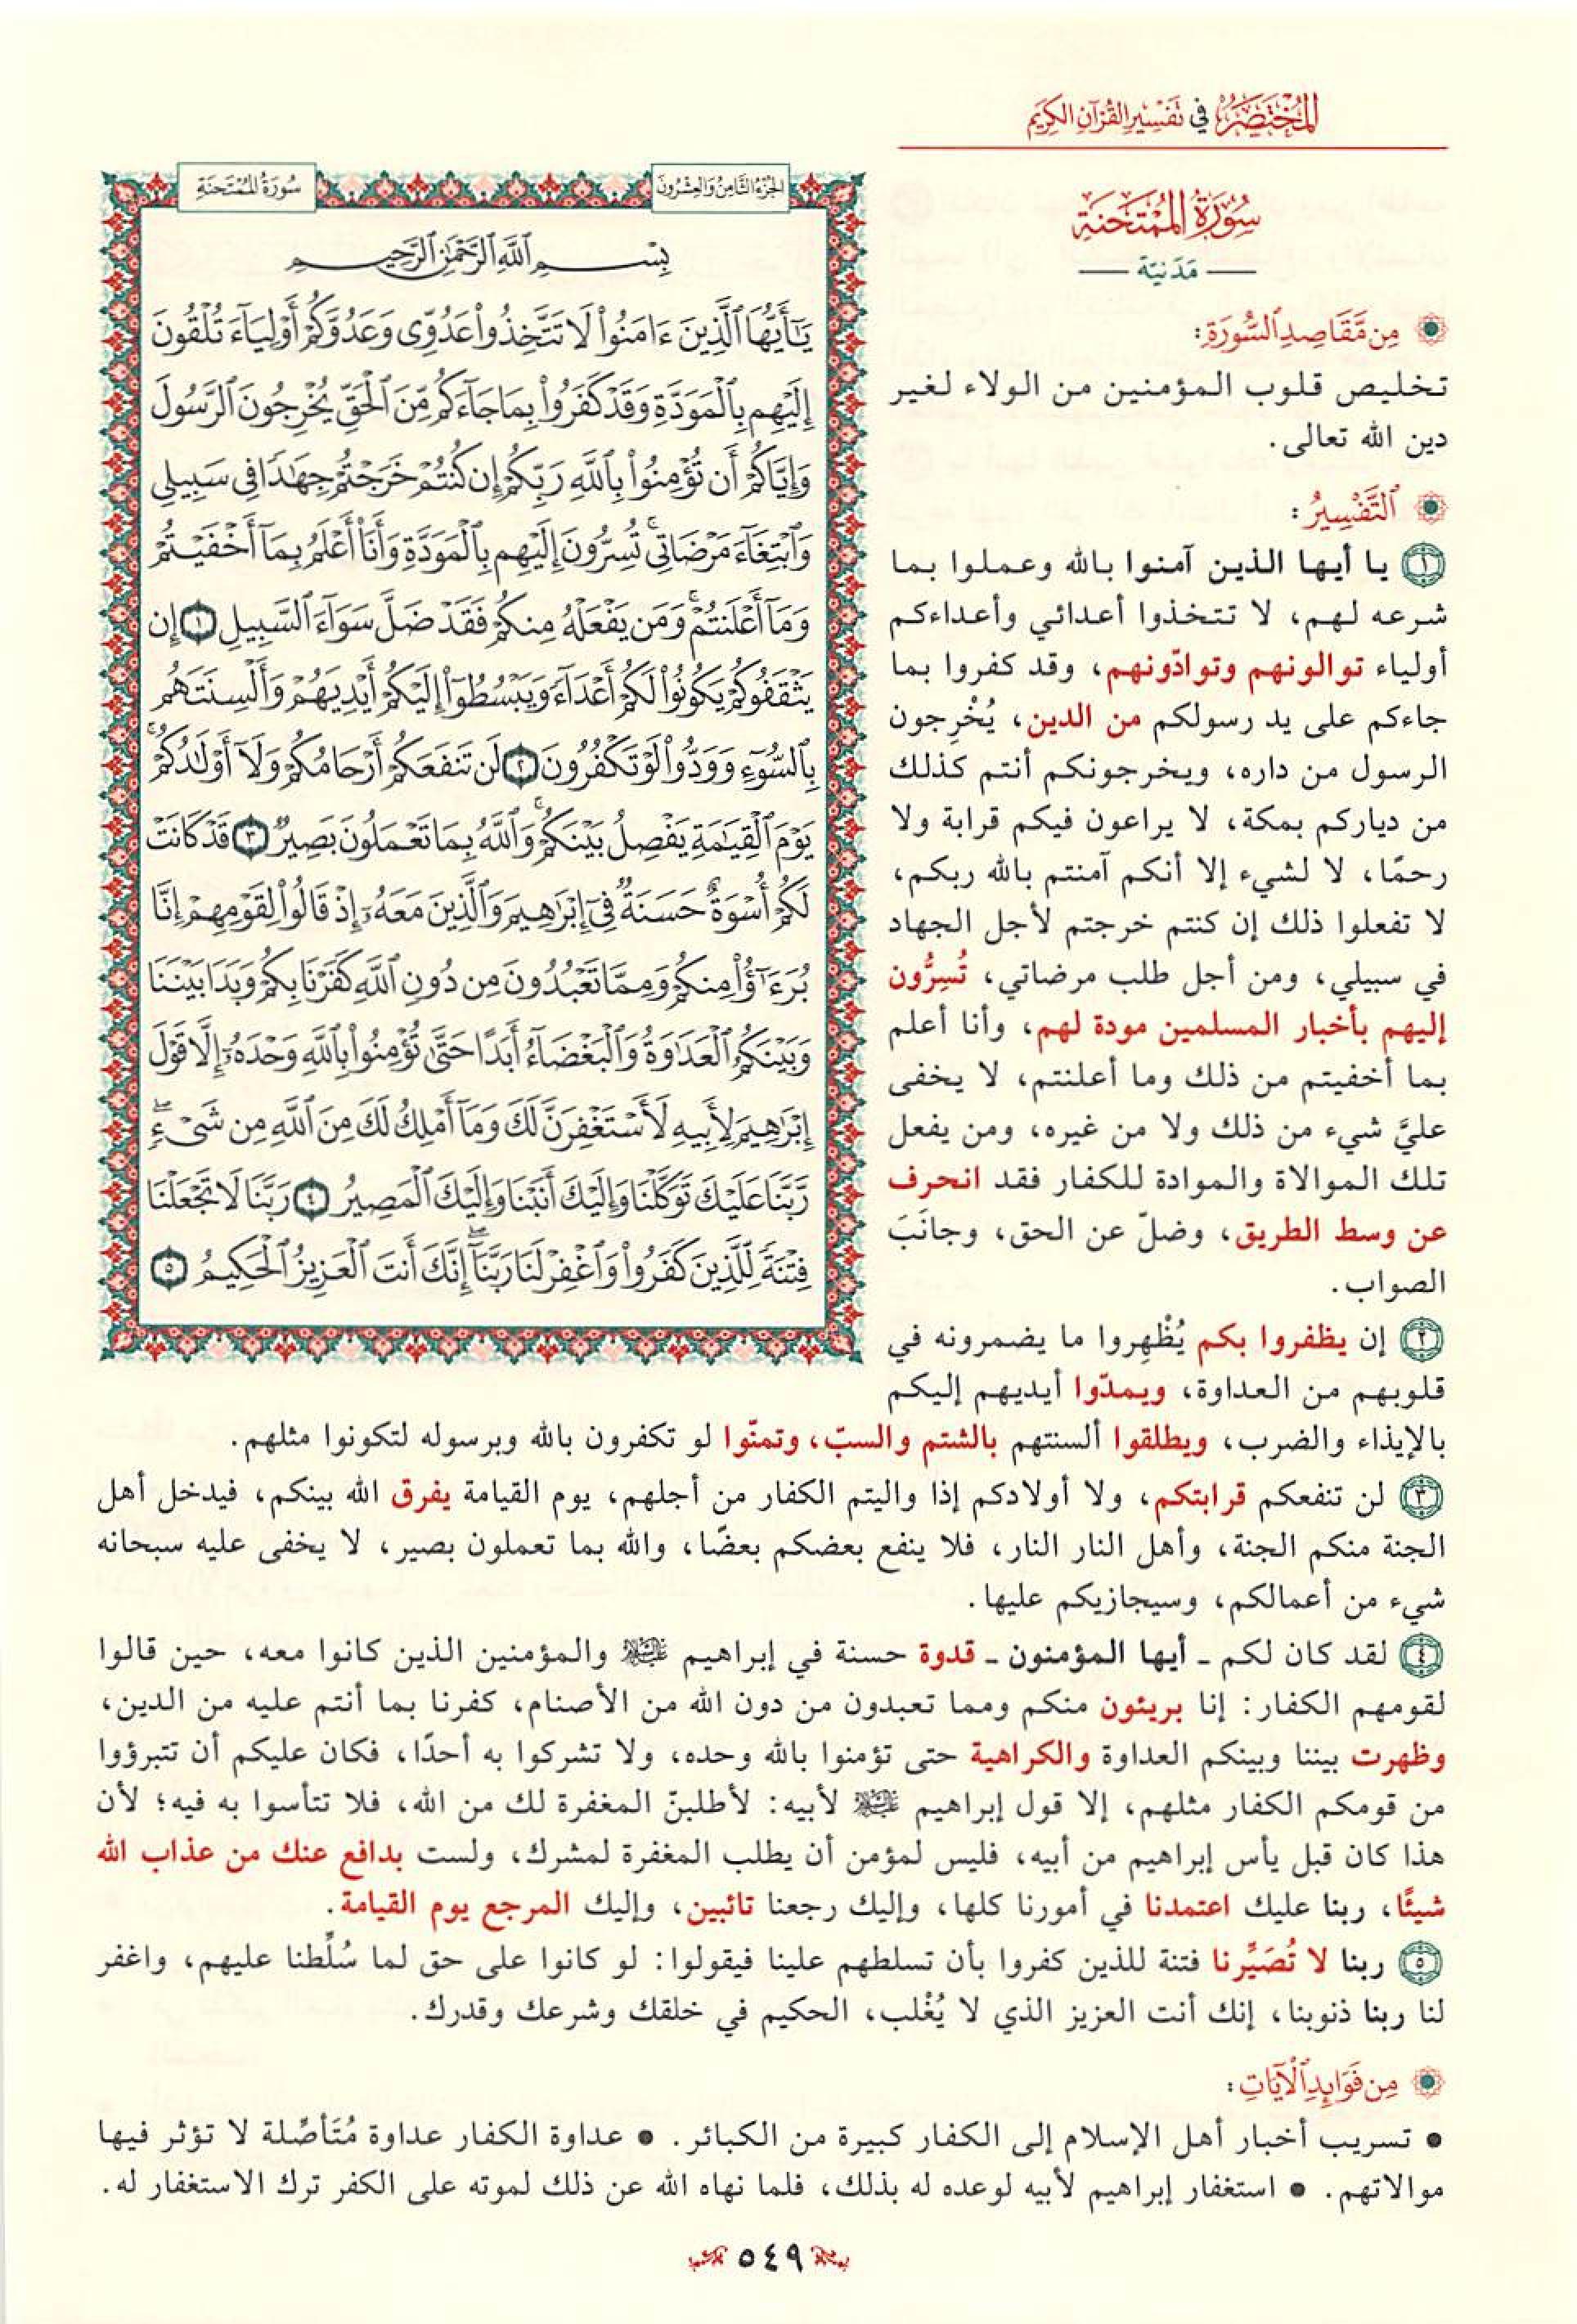 المختصر في تفسير القرآن الكريم
الجزء الثامن والعشرون
سورة الممتحنة
بِسْمِ ٱللَّهِ ٱلرَّحْمَٰنِ ٱلرَّحِيمِ
يَٰٓأَيُّهَا ٱلَّذِينَ ءَامَنُوا۟ لَا تَتَّخِذُوا۟ عَدُوِّى وَعَدُوَّكُمْ أَوْلِيَآءَ تُلْقُونَ
إِلَيْهِم بِٱلْمَوَدَّةِ وَقَدْ كَفَرُوا۟ بِمَا جَآءَكُم مِّنَ ٱلْحَقِّ يُخْرِجُونَ ٱلرَّسُولَ
وَإِيَّاكُمْ أَن تُؤْمِنُوا۟ بِٱللَّهِ رَبِّكُمْ إِن كُنتُمْ خَرَجْتُمْ جِهَٰدًا فِى سَبِيلِى
وَٱبْتِغَآءَ مَرْضَاتِى ۚ تُسِرُّونَ إِلَيْهِم بِٱلْمَوَدَّةِ وَأَنَا۠ أَعْلَمُ بِمَآ أَخْفَيْتُمْ
وَمَآ أَعْلَنتُمْ ۚ وَمَن يَفْعَلْهُ مِنكُمْ فَقَدْ ضَلَّ سَوَآءَ ٱلسَّبِيلِ ١ إِن
يَثْقَفُوكُمْ يَكُونُوا۟ لَكُمْ أَعْدَآءً وَيَبْسُطُوٓا۟ إِلَيْكُمْ أَيْدِيَهُمْ وَأَلْسِنَتَهُم
بِٱلسُّوٓءِ وَوَدُّوا۟ لَوْ تَكْفُرُونَ ٢ لَن تَنفَعَكُمْ أَرْحَامُكُمْ وَلَآ أَوْلَٰدُكُمْ ۚ
يَوْمَ ٱلْقِيَٰمَةِ يَفْصِلُ بَيْنَكُمْ ۚ وَٱللَّهُ بِمَا تَعْمَلُونَ بَصِيرٌ ٣ قَدْ كَانَتْ
لَكُمْ أُسْوَةٌ حَسَنَةٌ فِىٓ إِبْرَٰهِيمَ وَٱلَّذِينَ مَعَهُۥٓ إِذْ قَالُوا۟ لِقَوْمِهِمْ إِنَّا
بُرَءَٰٓؤُا۟ مِنكُمْ وَمِمَّا تَعْبُدُونَ مِن دُونِ ٱللَّهِ كَفَرْنَا بِكُمْ وَبَدَا بَيْنَنَا
وَبَيْنَكُمُ ٱلْعَدَٰوَةُ وَٱلْبَغْضَآءُ أَبَدًا حَتَّىٰ تُؤْمِنُوا۟ بِٱللَّهِ وَحْدَهُۥٓ إِلَّا قَوْلَ
إِبْرَٰهِيمَ لِأَبِيهِ لَأَسْتَغْفِرَنَّ لَكَ وَمَآ أَمْلِكُ لَكَ مِنَ ٱللَّهِ مِن شَىْءٍ ۖ
رَّبَّنَا عَلَيْكَ تَوَكَّلْنَا وَإِلَيْكَ أَنَبْنَا وَإِلَيْكَ ٱلْمَصِيرُ ٤ رَبَّنَا لَا تَجْعَلْنَا
فِتْنَةً لِّلَّذِينَ كَفَرُوا۟ وَٱغْفِرْ لَنَا رَبَّنَآ ۖ إِنَّكَ أَنتَ ٱلْعَزِيزُ ٱلْحَكِيمُ ٥
سورة الممتحنة
مدنية
من مقاصد السورة:
تخليص قلوب المؤمنين من الولاء لغير
دين الله تعالى.
التفسير:
١ يا أيها الذين آمنوا بالله وعملوا بما
شرعه لهم، لا تتخذوا أعدائي وأعداءكم
أولياء توالونهم وتوادّونهم، وقد كفروا بما
جاءكم على يد رسولكم من الدين، يُخْرِجون
الرسول من داره، ويخرجونكم أنتم كذلك
من دياركم بمكة، لا يراعون فيكم قرابة ولا
رحمًا، لا لشيء إلا أنكم آمنتم بالله ربكم،
لا تفعلوا ذلك إن كنتم خرجتم لأجل الجهاد
في سبيلي، ومن أجل طلب مرضاتي، تُسِرُّون
إليهم بأخبار المسلمين مودة لهم، وأنا أعلم
بما أخفيتم من ذلك وما أعلنتم، لا يخفى
عليَّ شيء من ذلك ولا من غيره، ومن يفعل
تلك الموالاة والموادة للكفار فقد انحرف
عن وسط الطريق، وضلّ عن الحق، وجانَبَ
الصواب.
٢ إن يظفروا بكم يُظْهِروا ما يضمرونه في
قلوبهم من العداوة، ويمدّوا أيديهم إليكم
بالإيذاء والضرب، ويطلقوا ألسنتهم بالشتم والسبّ، وتمنّوا لو تكفرون بالله وبرسوله لتكونوا مثلهم.
٣ لن تنفعكم قرابتكم، ولا أولادكم إذا واليتم الكفار من أجلهم، يوم القيامة يفرق الله بينكم، فيدخل أهل
الجنة منكم الجنة، وأهل النار النار، فلا ينفع بعضكم بعضًا، والله بما تعملون بصير، لا يخفى عليه سبحانه
شيء من أعمالكم، وسيجازيكم عليها.
٤ لقد كان لكم ـ أيها المؤمنون ـ قدوة حسنة في إبراهيم عليه السلام والمؤمنين الذين كانوا معه، حين قالوا
لقومهم الكفار: إنا بريئون منكم ومما تعبدون من دون الله من الأصنام، كفرنا بما أنتم عليه من الدين،
وظهرت بيننا وبينكم العداوة والكراهية حتى تؤمنوا بالله وحده، ولا تشركوا به أحدًا، فكان عليكم أن تتبرؤوا
من قومكم الكفار مثلهم، إلا قول إبراهيم عليه السلام لأبيه: لأطلبنّ المغفرة لك من الله، فلا تتأسوا به فيه؛ لأن
هذا كان قبل يأس إبراهيم من أبيه، فليس لمؤمن أن يطلب المغفرة لمشرك، ولست بدافع عنك من عذاب الله
شيئًا، ربنا عليك اعتمدنا في أمورنا كلها، وإليك رجعنا تائبين، وإليك المرجع يوم القيامة.
٥ ربنا لا تُصَيِّرنا فتنة للذين كفروا بأن تسلطهم علينا فيقولوا: لو كانوا على حق لما سُلِّطنا عليهم، واغفر
لنا ربنا ذنوبنا، إنك أنت العزيز الذي لا يُغْلب، الحكيم في خلقك وشرعك وقدرك.
من فوائد الآيات:
• تسريب أخبار أهل الإسلام إلى الكفار كبيرة من الكبائر. • عداوة الكفار عداوة مُتَأصِّلة لا تؤثر فيها
موالاتهم. • استغفار إبراهيم لأبيه لوعده له بذلك، فلما نهاه الله عن ذلك لموته على الكفر ترك الاستغفار له.
٥٤٩